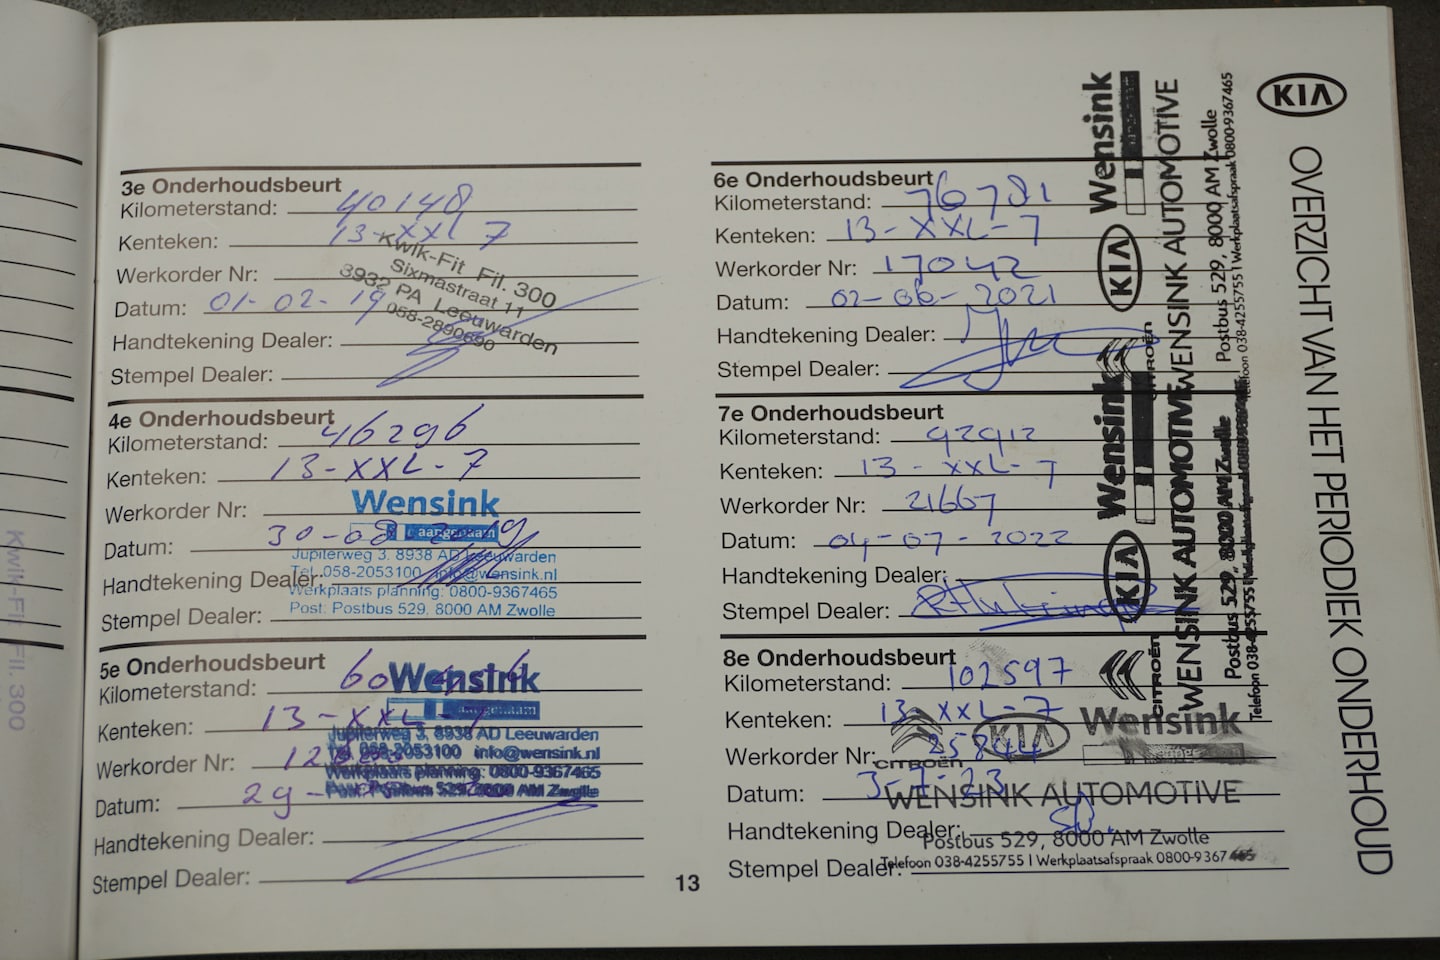 KIA
OVERZICHT VAN HET PERIODIEK ONDERHOUD
3e Onderhoudsbeurt
Kilometerstand: 40148
Kenteken: 13-XXL 7
Werkorder Nr:
Datum: 01-02-19
Handtekening Dealer:
Stempel Dealer:
Kwik-Fit Fil. 300
Sixmastraat 11
3932 PA Leeuwarden
058-2890690
4e Onderhoudsbeurt
Kilometerstand: 46296
Kenteken: 13-XXL-7
Werkorder Nr:
Datum: 30-08-2019
Handtekening Dealer:
Stempel Dealer:
Wensink
aangenaam
Jupiterweg 3, 8938 AD Leeuwarden
Tel. 058-2053100 info@wensink.nl
Werkplaats planning: 0800-9367465
Post: Postbus 529, 8000 AM Zwolle
5e Onderhoudsbeurt
Kilometerstand:
Kenteken: 13-XXL-7
Werkorder Nr:
Datum: 29-
Handtekening Dealer:
Stempel Dealer:
Wensink
aangenaam
Jupiterweg 3, 8938 AD Leeuwarden
Tel. 058-2053100 info@wensink.nl
Werkplaats planning: 0800-9367465
Post: Postbus 529, 8000 AM Zwolle
6e Onderhoudsbeurt
Kilometerstand: 76781
Kenteken: 13-XXL-7
Werkorder Nr: 17042
Datum: 02-06-2021
Handtekening Dealer:
Stempel Dealer:
Wensink
KIA
CITROËN
WENSINK AUTOMOTIVE
Postbus 529, 8000 AM Zwolle
Telefoon 038-4255755 | Werkplaatsafspraak 0800-9367465
7e Onderhoudsbeurt
Kilometerstand: 92912
Kenteken: 13-XXL-7
Werkorder Nr: 21667
Datum: 04-07-2022
Handtekening Dealer:
Stempel Dealer:
Wensink
KIA
CITROËN
WENSINK AUTOMOTIVE
Postbus 529, 8000 AM Zwolle
Telefoon 038-4255755 |
8e Onderhoudsbeurt
Kilometerstand: 102597
Kenteken: 13-XXL-7
Werkorder Nr: 25844
Datum: 3-7-23
Handtekening Dealer:
Stempel Dealer:
CITROËN KIA Wensink
WENSINK AUTOMOTIVE
Postbus 529, 8000 AM Zwolle
Telefoon 038-4255755 | Werkplaatsafspraak 0800-9367465
13
Kwik-Fit Fil. 300